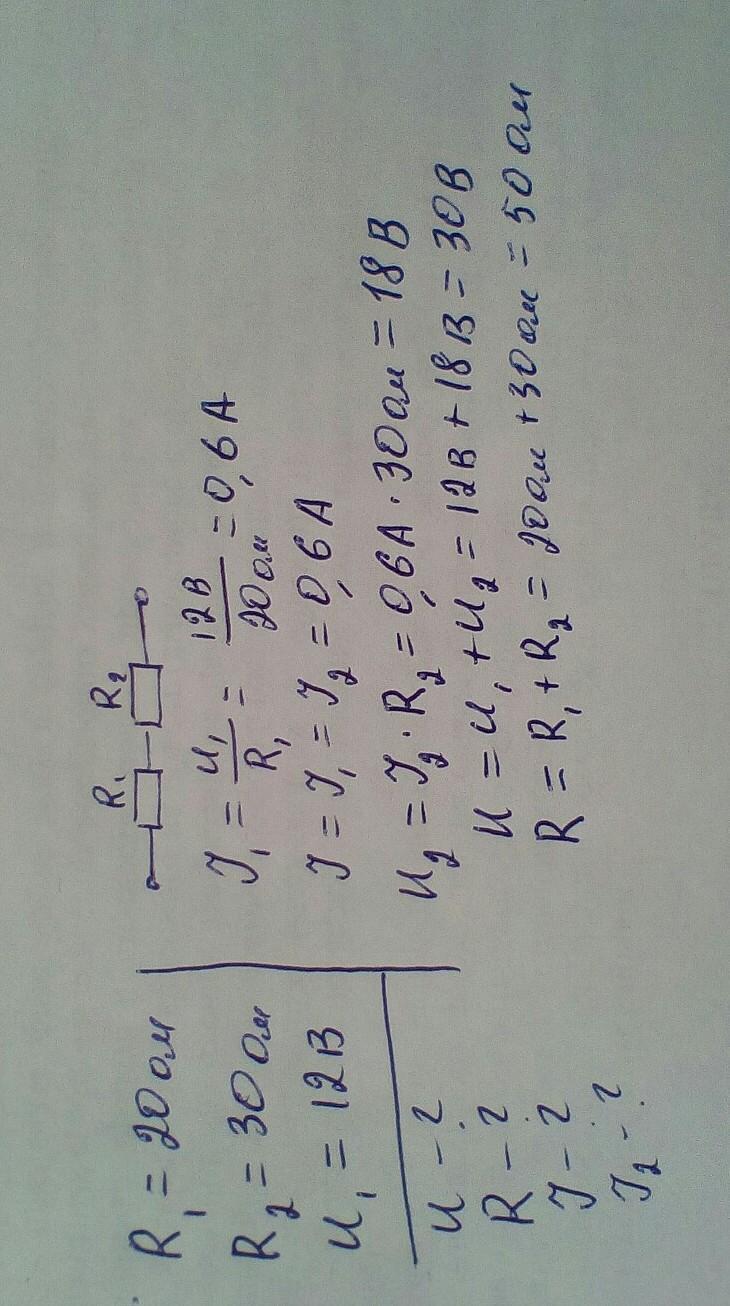 R₁ = 20 ом
R₂ = 30 ом
U₁ = 12 В
U - ?
R - ?
J - ?
J₂ - ?
R₁ R₂
J₁ = U₁/R₁ = 12В/20 ом = 0,6 А
J = J₁ = J₂ = 0,6 А
U₂ = J₂ · R₂ = 0,6 А · 30 ом = 18 В
U = U₁ + U₂ = 12В + 18В = 30В
R = R₁ + R₂ = 20 ом + 30 ом = 50 ом